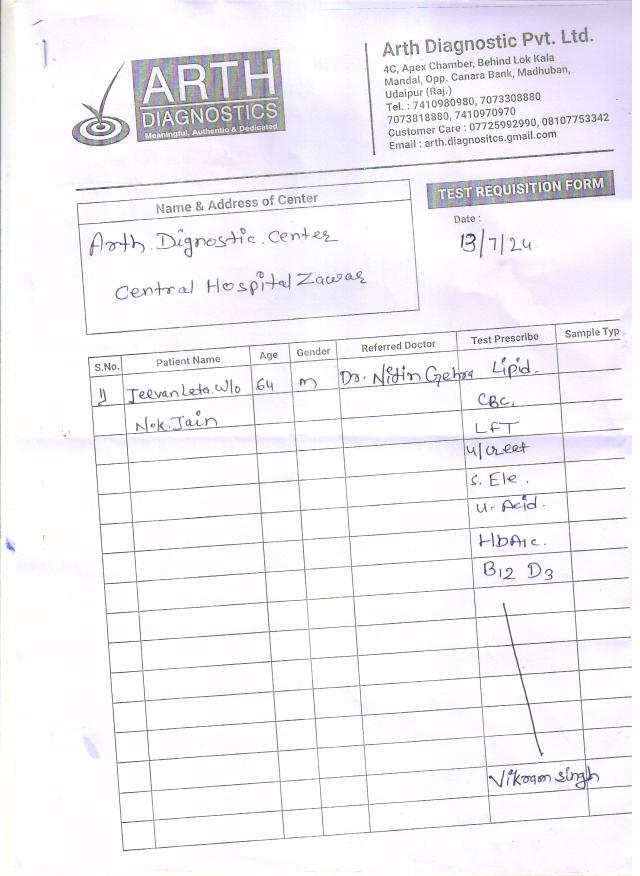 ARTH
DIAGNOSTICS
Meaningful, Authentic & Dedicated
Arth Diagnostic Pvt. Ltd.
4C, Apex Chamber, Behind Lok Kala
Mandal, Opp. Canara Bank, Madhuban,
Udaipur (Raj.)
Tel. : 7410980980, 7073308880
7073818880, 7410970970
Customer Care : 07725992990, 08107753342
Email : arth.diagnositcs.gmail.com
Name & Address of Center
Arth. Dignostic. Center
Central Hospital Zawar
TEST REQUISITION FORM
Date :
13/7/24
S.No. Patient Name Age Gender Referred Doctor Test Prescribe Sample Typ
1) Jeevan Leta. W/o 64 m Dr. Nitin Lipid.
N.k. Jain CBC,
LFT
U/creet
S. Ele.
U. Acid.
HbA1c.
B12 D3
Vikram singh